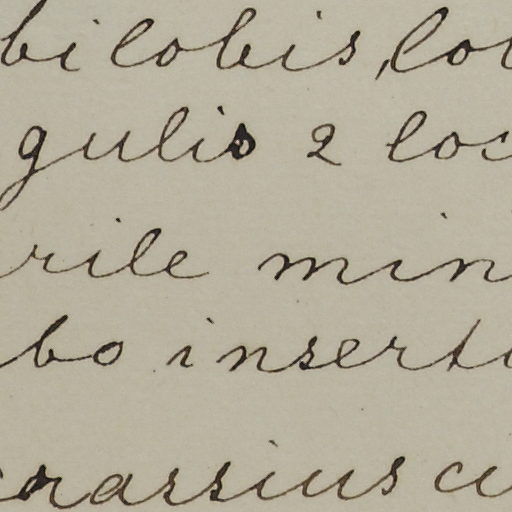 bilobis, lob
gulis 2 loc
rile min
bo inserto
crassius ci